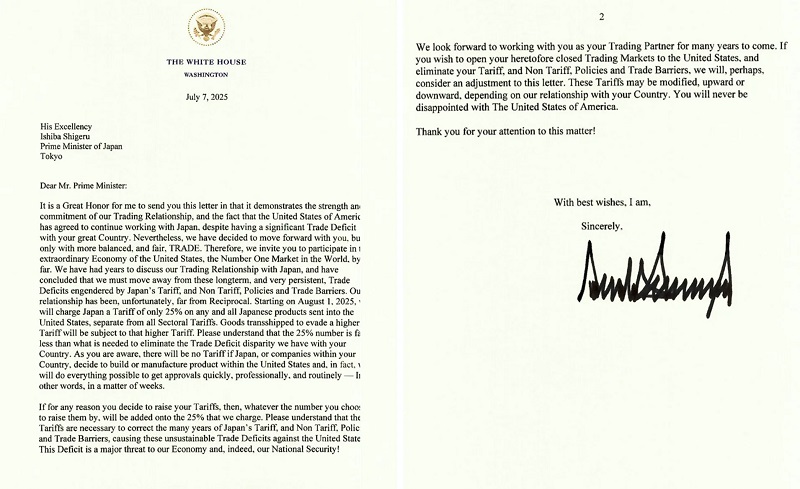 THE WHITE HOUSE
WASHINGTON
July 7, 2025
His Excellency
Ishiba Shigeru
Prime Minister of Japan
Tokyo
Dear Mr. Prime Minister:
It is a Great Honor for me to send you this letter in that it demonstrates the strength an
commitment of our Trading Relationship, and the fact that the United States of Americ
has agreed to continue working with Japan, despite having a significant Trade Deficit
with your great Country. Nevertheless, we have decided to move forward with you, bu
only with more balanced, and fair, TRADE. Therefore, we invite you to participate in
extraordinary Economy of the United States, the Number One Market in the World, by
far. We have had years to discuss our Trading Relationship with Japan, and have
concluded that we must move away from these longterm, and very persistent, Trade
Deficits engendered by Japan's Tariff, and Non Tariff, Policies and Trade Barriers. Ou
relationship has been, unfortunately, far from Reciprocal. Starting on August 1, 2025,
will charge Japan a Tariff of only 25% on any and all Japanese products sent into the
United States, separate from all Sectoral Tariffs. Goods transshipped to evade a higher
Tariff will be subject to that higher Tariff. Please understand that the 25% number is fa
less than what is needed to eliminate the Trade Deficit disparity we have with your
Country. As you are aware, there will be no Tariff if Japan, or companies within your
Country, decide to build or manufacture product within the United States and, in fact,
will do everything possible to get approvals quickly, professionally, and routinely — I
other words, in a matter of weeks.
If for any reason you decide to raise your Tariffs, then, whatever the number you choos
to raise them by, will be added onto the 25% that we charge. Please understand that the
Tariffs are necessary to correct the many years of Japan's Tariff, and Non Tariff, Polic
and Trade Barriers, causing these unsustainable Trade Deficits against the United State
This Deficit is a major threat to our Economy and, indeed, our National Security!
2
We look forward to working with you as your Trading Partner for many years to come. If
you wish to open your heretofore closed Trading Markets to the United States, and
eliminate your Tariff, and Non Tariff, Policies and Trade Barriers, we will, perhaps,
consider an adjustment to this letter. These Tariffs may be modified, upward or
downward, depending on our relationship with your Country. You will never be
disappointed with The United States of America.
Thank you for your attention to this matter!
With best wishes, I am,
Sincerely,